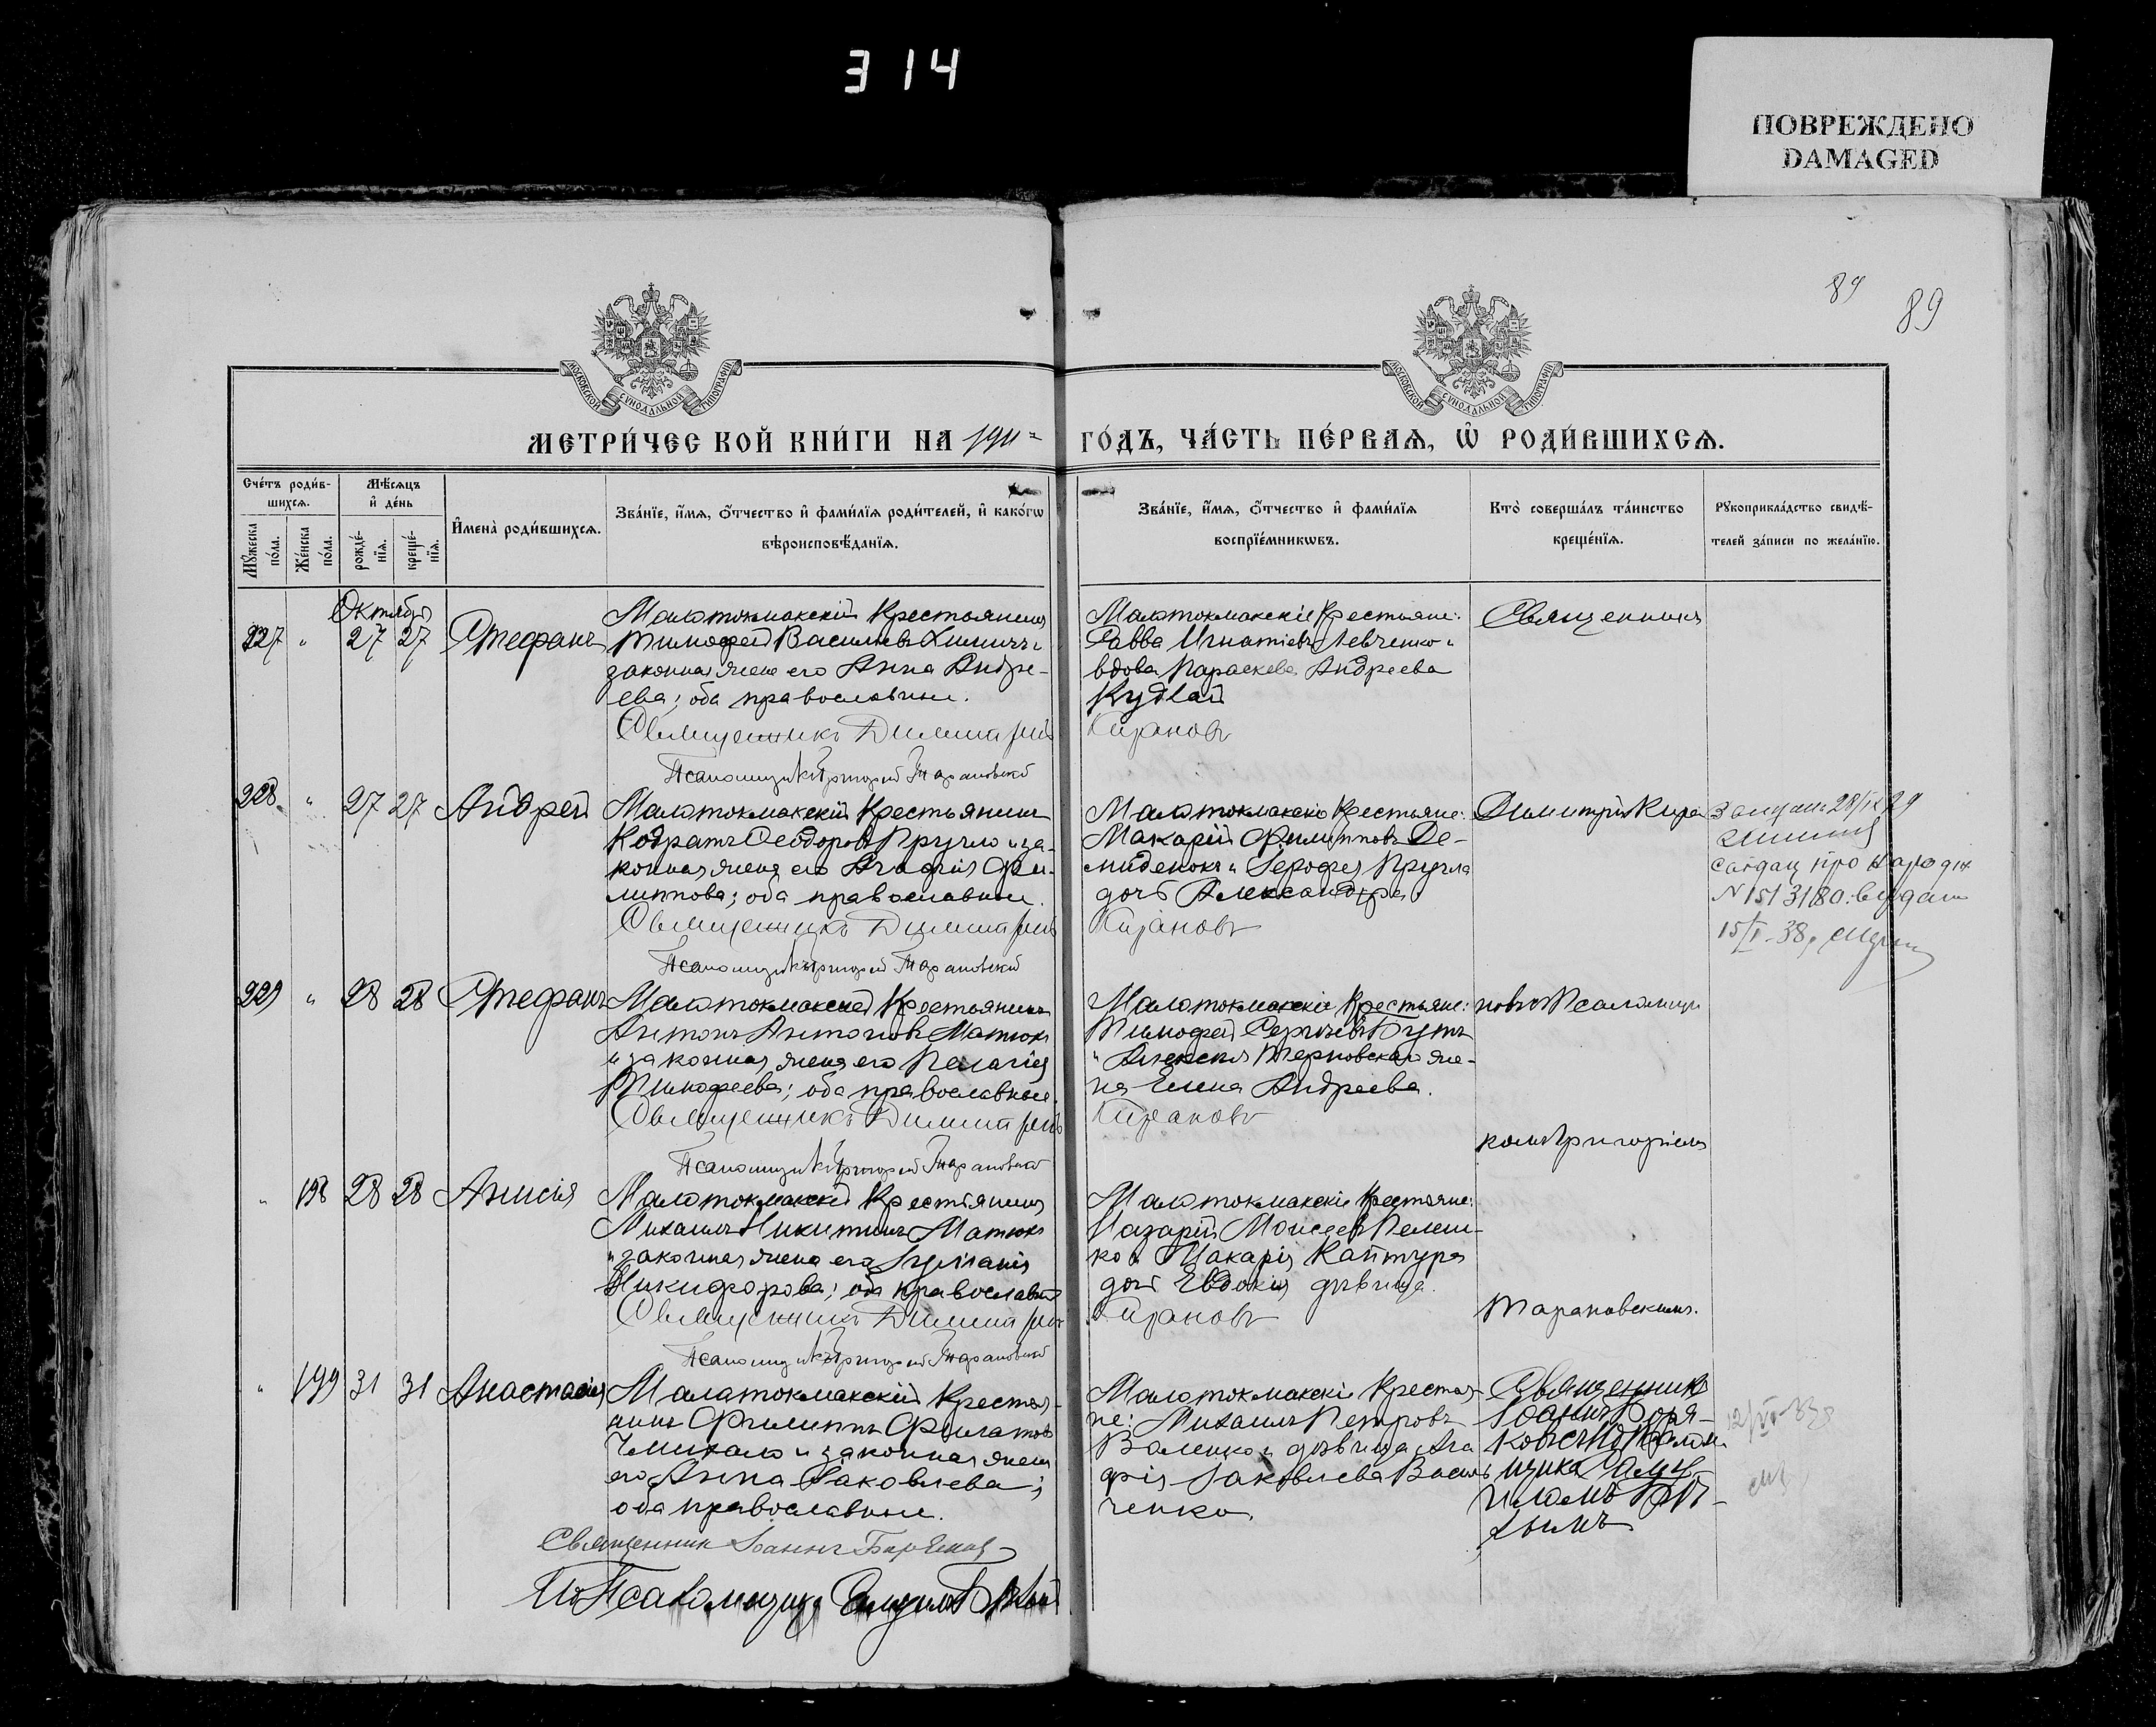 314
ПОВРЕЖДЕНО
DAMAGED
89
89
МОСКОВСКОЙ СѴНОДАЛЬНОЙ ТИПОГРАФІИ
МОСКОВСКОЙ СѴНОДАЛЬНОЙ ТИПОГРАФІИ
МЕТРИ́ЧЕСКОЙ КНИ́ГИ НА 1911 =
ГО́ДЪ, ЧА́СТЬ ПЕ́РВАѦ, Ѡ҆ РОДИ́ВШИХСѦ.
Сче́тъ роди́в-
шихсѧ.
Мꙋ́жеска по́ла.
Же́нска по́ла.
Мѣ́сѧцъ
и҆ де́нь
рожде́-
нїѧ.
креще́-
нїѧ.
И҆мена̀ роди́вшихсѧ.
Зва́нїе, и҆́мѧ, ѻ҆́тчество и҆ фами́лїѧ роди́телей, и҆ како́гѡ
вѣроисповѣ́данїѧ.
Зва́нїе, и҆́мѧ, ѻ҆́тчество и҆ фами́лїѧ
воспрїе́мникѡвъ.
Кто̀ соверша́лъ та́инство
креще́нїѧ.
Рꙋкоприкла́дство свидѣ́-
телей за́писи по жела́нїю.
Октябрь
227 " 27 27 Стефанъ
Малотокмакскій Крестьянинъ
Тимофей Васильевъ и
законная жена его Анна Андре-
ева; оба православные.
Священникъ Димитрій
Псаломщикъ Григорій Тарановскій
Малотокмакскіе Крестьяне:
Савва Игнатіевъ Левченко и
вдова Параскева Андреева
Кудлай
Кирановъ
Священникъ
228 " 27 27 Андрей
Малотокмакскій Крестьянинъ
Кодратъ Ѳеодоровъ Пругло и за-
конная жена его Агафія Фи-
липпова; оба православные.
Священникъ Димитрій
Псаломщикъ Григорій Тарановскій
Малотокмакскіе Крестьяне:
Макарій Филипповъ Де-
миденокъ и Іерофея Пругла
дочь Александра
Кирановъ
Димитрій Кира
про народж
N 151 3180
15/I-38,
229 " 28 28 Стефанъ
Малотокмакскій Крестьянинъ
Антонъ Антоновъ Матюхъ
и законная жена его Пелагія
Тимофеева; оба православные.
Священникъ Димитрій
Псаломщикъ Григорій Тарановскій
Малотокмакскіе Крестьяне:
Тимофей Сергіевъ Бутъ
и Алексія Терновскаго же-
на Елена Андреева.
Кирановъ
новъ съ Псаломщи
комъ Григоріемъ
" 198 28 28 Анисія
Малотокмакскій Крестьянинъ
Михаилъ Никитинъ Матюхъ
и законная жена его Іуліанія
Никифорова; оба православные
Священникъ Димитрій
Псаломщикъ Григорій Тарановскій
Малотокмакскіе Крестьяне:
Назарій Моисеевъ Пелеш-
ко и Макарія Каптура
дочь Евдокія дѣвица.
Кирановъ
Тарановскимъ.
" 199 31 31 Анастасія
Малотокмакскій Крестья-
нинъ Филиппъ Филатовъ
Чмихало и законная жена
его Анна Іаковлева;
оба православные.
Священникъ Іоаннъ
Малотокмакскіе Крестья-
не: Михаилъ Петровъ
Валенко и дѣвица Ага
фія Іаковлева Василь
ченко.
Священникъ
Іоаннъ